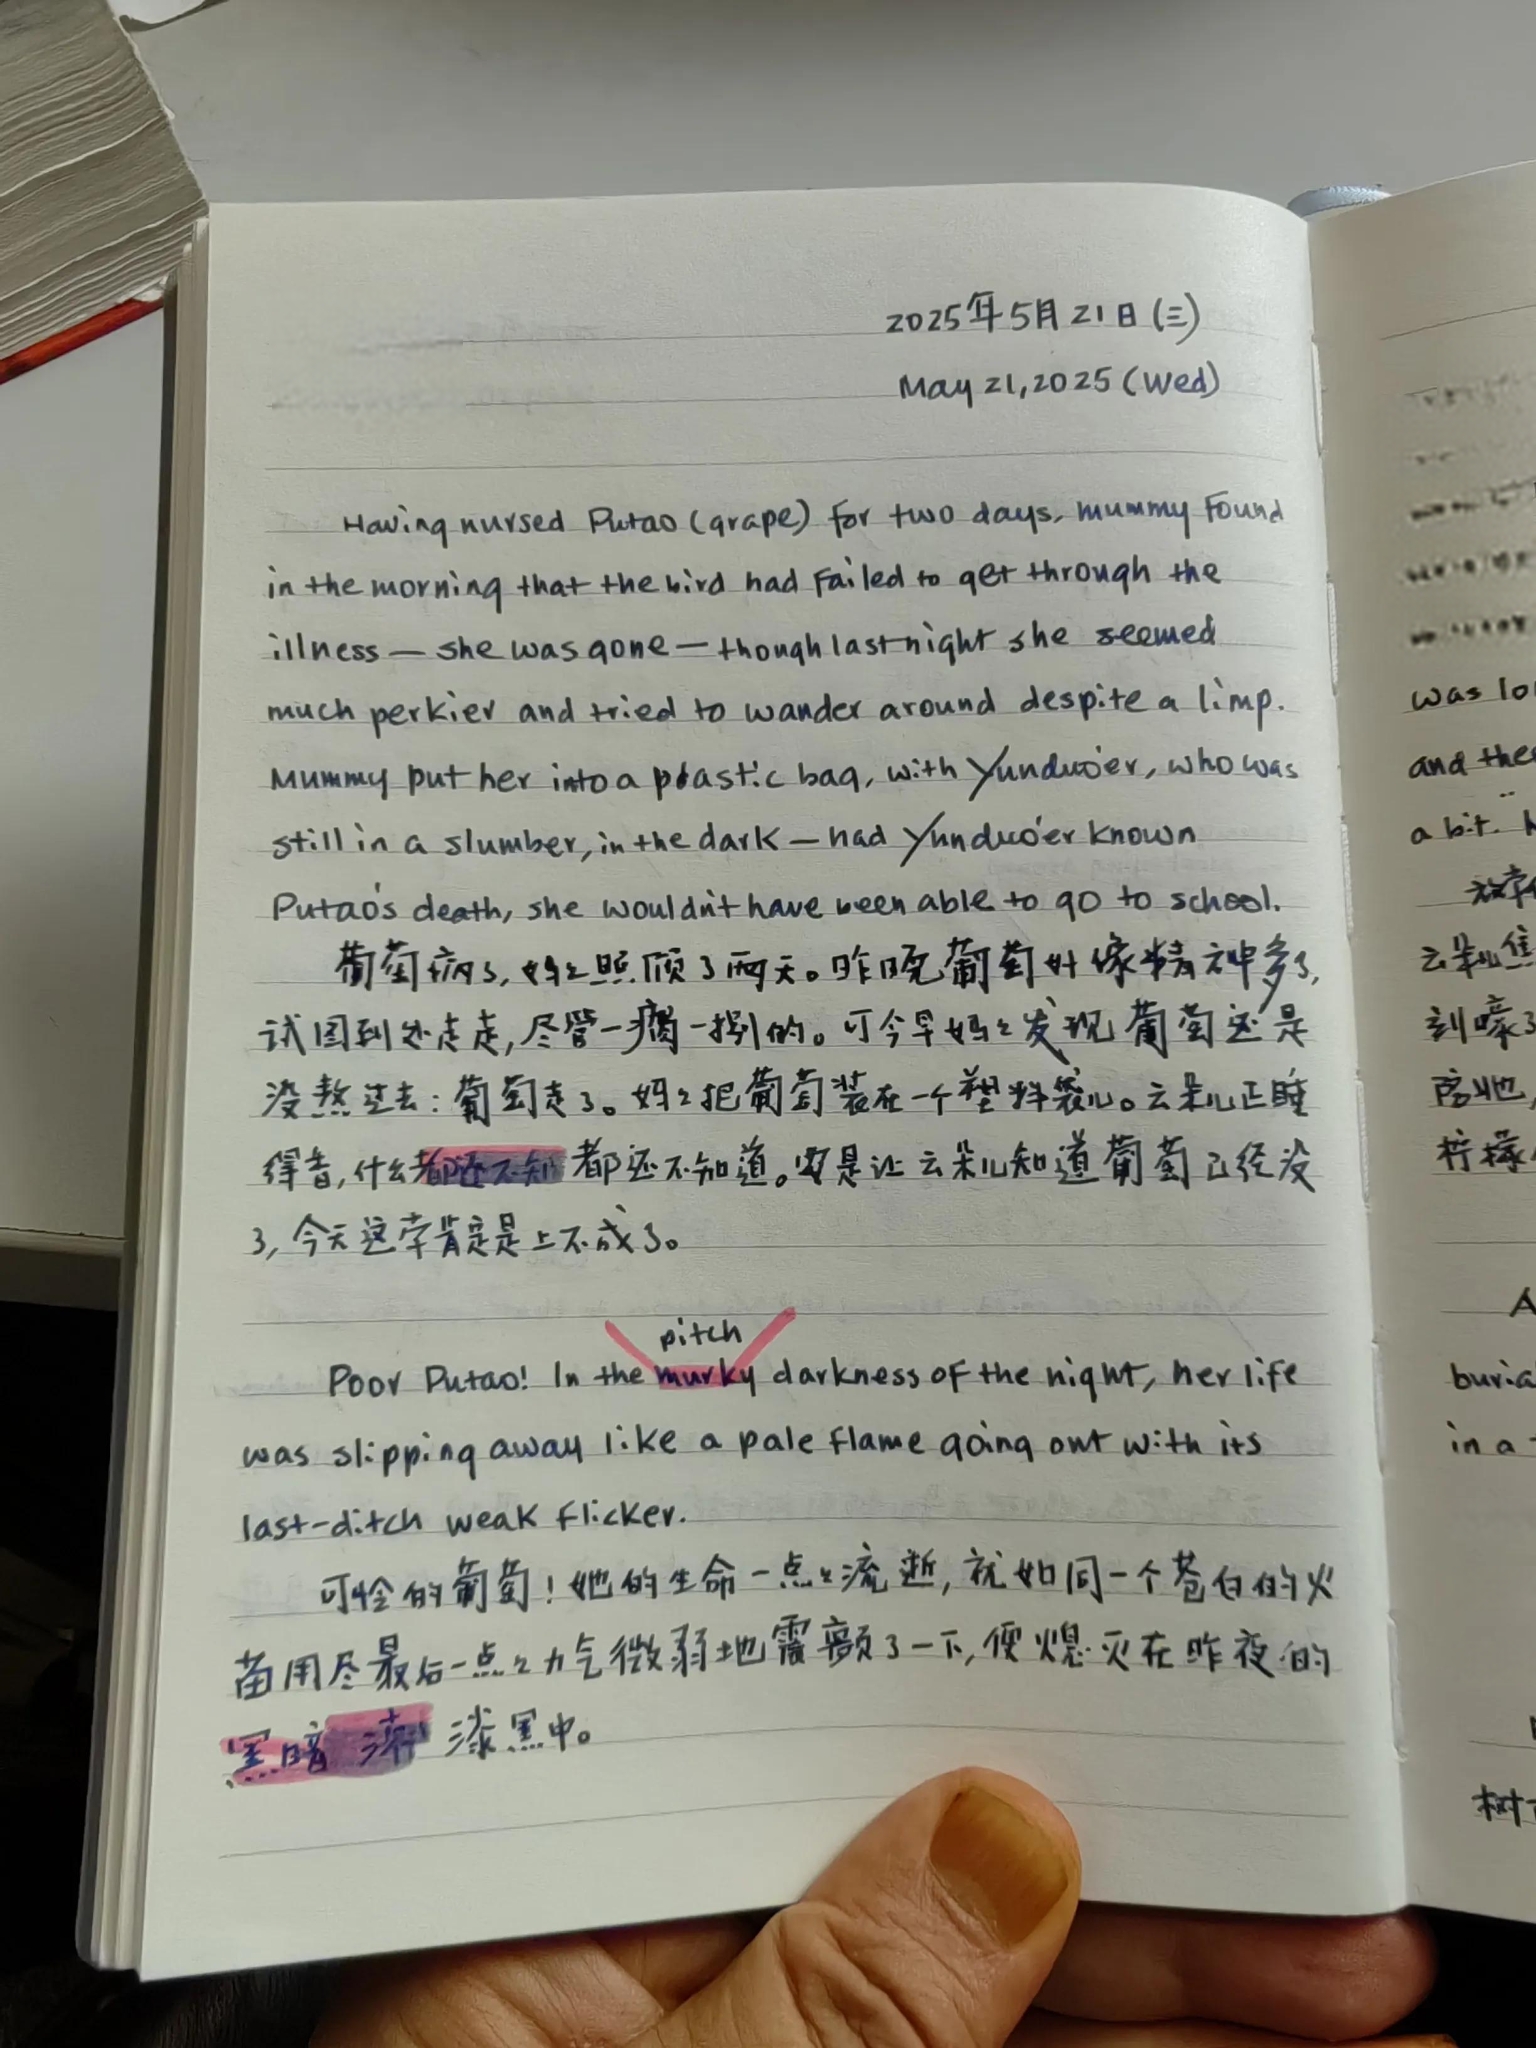 2025年5月21日(三)
May 21, 2025 (Wed)
Having nursed Putao (grape) for two days, mummy found
in the morning that the bird had failed to get through the
illness — she was gone — though last night she seemed
much perkier and tried to wander around despite a limp.
Mummy put her into a plastic bag, with Yunduo'er, who was
still in a slumber, in the dark — had Yunduo'er known
Putao's death, she wouldn't have been able to go to school.
葡萄病了,妈妈照顾了两天。昨晚葡萄好像精神多了,
试图到处走走,尽管一瘸一拐的。可今早妈妈发现葡萄还是
没熬过去:葡萄走了。妈妈把葡萄装在一个塑料袋儿。云朵儿正睡
得香,什么都还不知都还不知道。要是让云朵儿知道葡萄已经没
了,今天这学肯定是上不成了。
pitch
Poor Putao! In the murky darkness of the night, her life
was slipping away like a pale flame going out with its
last-ditch weak flicker.
可怜的葡萄!她的生命一点点流逝,就如同一个苍白的火
苗用尽最后一点点力气微弱地震颤了一下,便熄灭在昨夜的
黑暗 漆黑中。
was lo
and the
a bit.
云朵儿焦
刻嚎
陪她,
柠檬
A
buria
in a
树